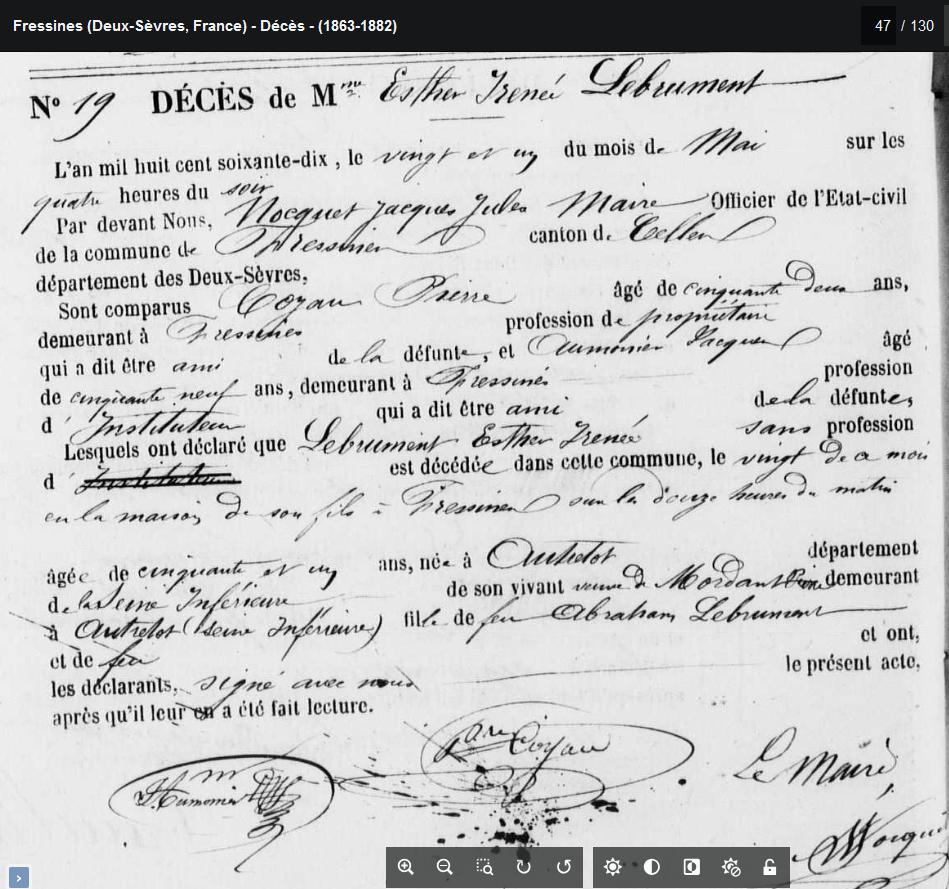 Fressines (Deux-Sèvres, France) - Décès - (1863-1882)
47 / 130
N° 19 DÉCÈS de Mme Esther Irenée Lebrument
L'an mil huit cent soixante-dix, le vingt et un du mois de Mai sur les
quatre heures du soir
Par devant Nous, Nocquet Jacques Jules Maire Officier de l'Etat-civil
de la commune de Fressines canton de Celles
département des Deux-Sèvres,
Sont comparus Coyau Pierre âgé de cinquante deux ans,
demeurant à Fressines profession de propriétaire
qui a dit être ami de la défunte, et Aumonier Jacques âgé
de cinquante neuf ans, demeurant à Fressines profession
d'Instituteur qui a dit être ami de la défunte,
Lesquels ont déclaré que Lebrument Esther Irenée sans profession
d' Instituteur est décédée dans cette commune, le vingt de ce mois
en la maison de son fils à Fressines sur les douze heures du matin
âgée de cinquante et un ans, née à Autretot département
de la Seine Inférieure de son vivant veuve de Mordant demeurant
à Autretot (Seine Inférieure) fille de feu Abraham Lebrument
et de feu et ont,
les déclarants, signé avec nous le présent acte,
après qu'il leur en a été fait lecture.
Coyau
Aumonier
Le Maire